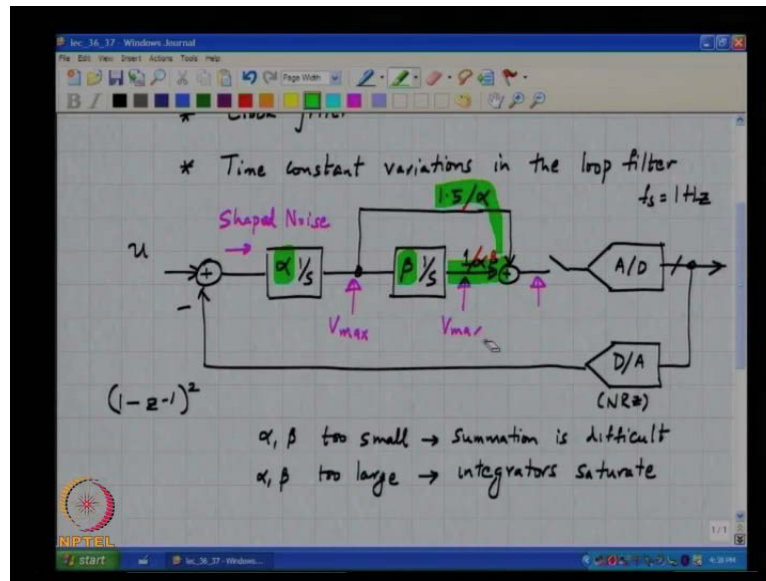 lec_36_37 - Windows Journal
File Edit View Insert Actions Tools Help
Page Width
B I
* Clock jitter
* Time constant variations in the loop filter
fs = 1 Hz
1.5/α
Shaped Noise
u
+
α 1/s
β 1/s
1/αβ
+
A/D
-
Vmax
Vmax
D/A
(NRZ)
(1 - z-1)2
α, β too small → summation is difficult
α, β too large → integrators saturate
1/1
NPTEL
start
lec_36_37 - Windows...
4:38 PM